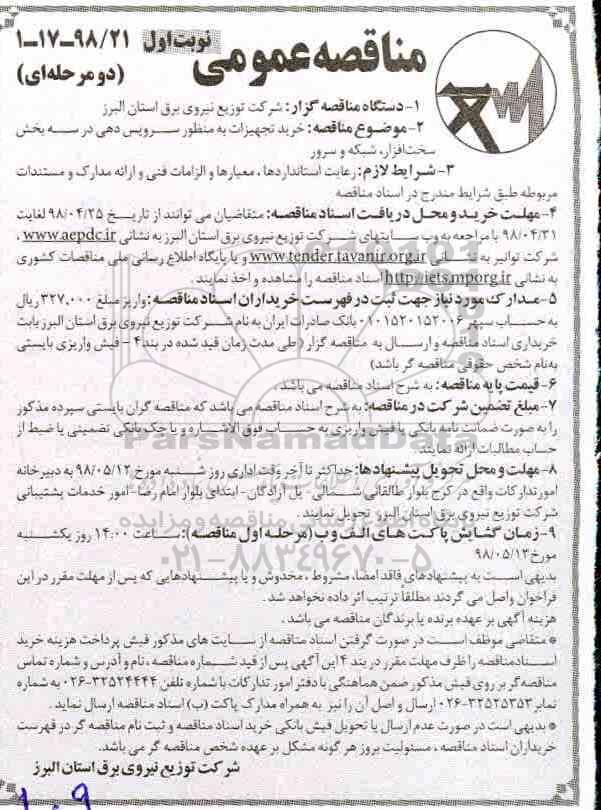 مناقصه عمومی
نوبت اول
۱-۱۷-۹۸/۲۱
(دو مرحله‌ای)
۱- دستگاه مناقصه گزار: شرکت توزیع نیروی برق استان البرز
۲-موضوع مناقصه: خرید تجهیزات به منظور سرویس دهی در سه بخش
سخت‌افزار، شبکه و سرور
۳-شرایط لازم: رعایت استانداردها، معیارها و الزامات فنی و ارائه مدارک و مستندات
مربوطه طبق شرایط مندرج در اسناد مناقصه
۴-مهلت خرید و محل دریافت اسناد مناقصه: متقاضیان می توانند از تاریخ ۹۸/۰۴/۲۵ لغایت
۹۸/۰۴/۳۱ با مراجعه به وب سایتهای شرکت توزیع نیروی برق استان البرز به نشانی www.aepdc.ir ،
شرکت توانیر به نشانی www.tender.tavanir.org.ir و یا پایگاه اطلاع رسانی ملی مناقصات کشوری
به نشانی http://iets.mporg.ir اسناد مناقصه را مشاهده و اخذ نمایند.
۵-مدارک مورد نیاز جهت ثبت در فهرست خریداران اسناد مناقصه: واریز مبلغ ۳۲۷,۰۰۰ ریال
به حساب سپهر ۰۱۰۱۵۲۰۱۵۲۰۰۶ بانک صادرات ایران به نام شرکت توزیع نیروی برق استان البرز بابت
خریداری اسناد مناقصه و ارسال به مناقصه گزار (طی مدت زمان قید شده در بند ۴ - فیش واریزی بایستی
به‌نام شخص حقوقی مناقصه گر باشد)
۶-قیمت پایه مناقصه: به شرح اسناد مناقصه می باشد.
۷-مبلغ تضمین شرکت در مناقصه: به شرح اسناد مناقصه می باشد که مناقصه گران بایستی سپرده مذکور
را به صورت ضمانت نامه بانکی یا فیش واریزی به حساب فوق الاشاره و یا چک بانکی تضمینی یا ضبط از
حساب مطالبات ارائه نمایند.
۸-مهلت و محل تحویل پیشنهادها: حداکثر تا آخر وقت اداری روز شنبه مورخ ۹۸/۰۵/۱۲ به دبیرخانه
امور تدارکات واقع در کرج بلوار طالقانی شمالی- پل آزادگان- ابتدای بلوار امام رضا- امور خدمات پشتیبانی
شرکت توزیع نیروی برق استان البرز تحویل نمایند.
۹-زمان گشایش پاکت های الف و ب (مرحله اول مناقصه): ساعت ۱۴:۰۰ روز یکشنبه
مورخ ۹۸/۰۵/۱۳
بدیهی است به پیشنهادهای فاقد امضا، مشروط، مخدوش و یا پیشنهادهایی که پس از مهلت مقرر در این
فراخوان واصل می گردند مطلقاً ترتیب اثر داده نخواهد شد.
هزینه آگهی بر عهده برنده یا برندگان مناقصه می باشد.
* متقاضی موظف است در صورت گرفتن اسناد مناقصه از سایت های مذکور فیش پرداخت هزینه خرید
اسناد مناقصه را ظرف مهلت مقرر در بند ۴ این آگهی پس از قید شماره مناقصه، نام و آدرس و شماره تماس
مناقصه گر بر روی فیش مذکور ضمن هماهنگی با دفتر امور تدارکات با شماره تلفن ۳۲۵۲۴۴۴۴-۰۲۶ به شماره
نمابر ۳۲۵۲۵۳۵۳-۰۲۶ ارسال و اصل آن را نیز به همراه مدارک پاکت (ب) اسناد مناقصه ارسال نماید.
* بدیهی است در صورت عدم ارسال یا تحویل فیش بانکی خرید اسناد مناقصه و ثبت نام مناقصه گر در فهرست
خریداران اسناد مناقصه، مسئولیت بروز هر گونه مشکل بر عهده شخص مناقصه گر می باشد.
شرکت توزیع نیروی برق استان البرز
ParsNamadData
۰۲۱-۸۸۳۴۹۶۷۰-۵
۱۰۹